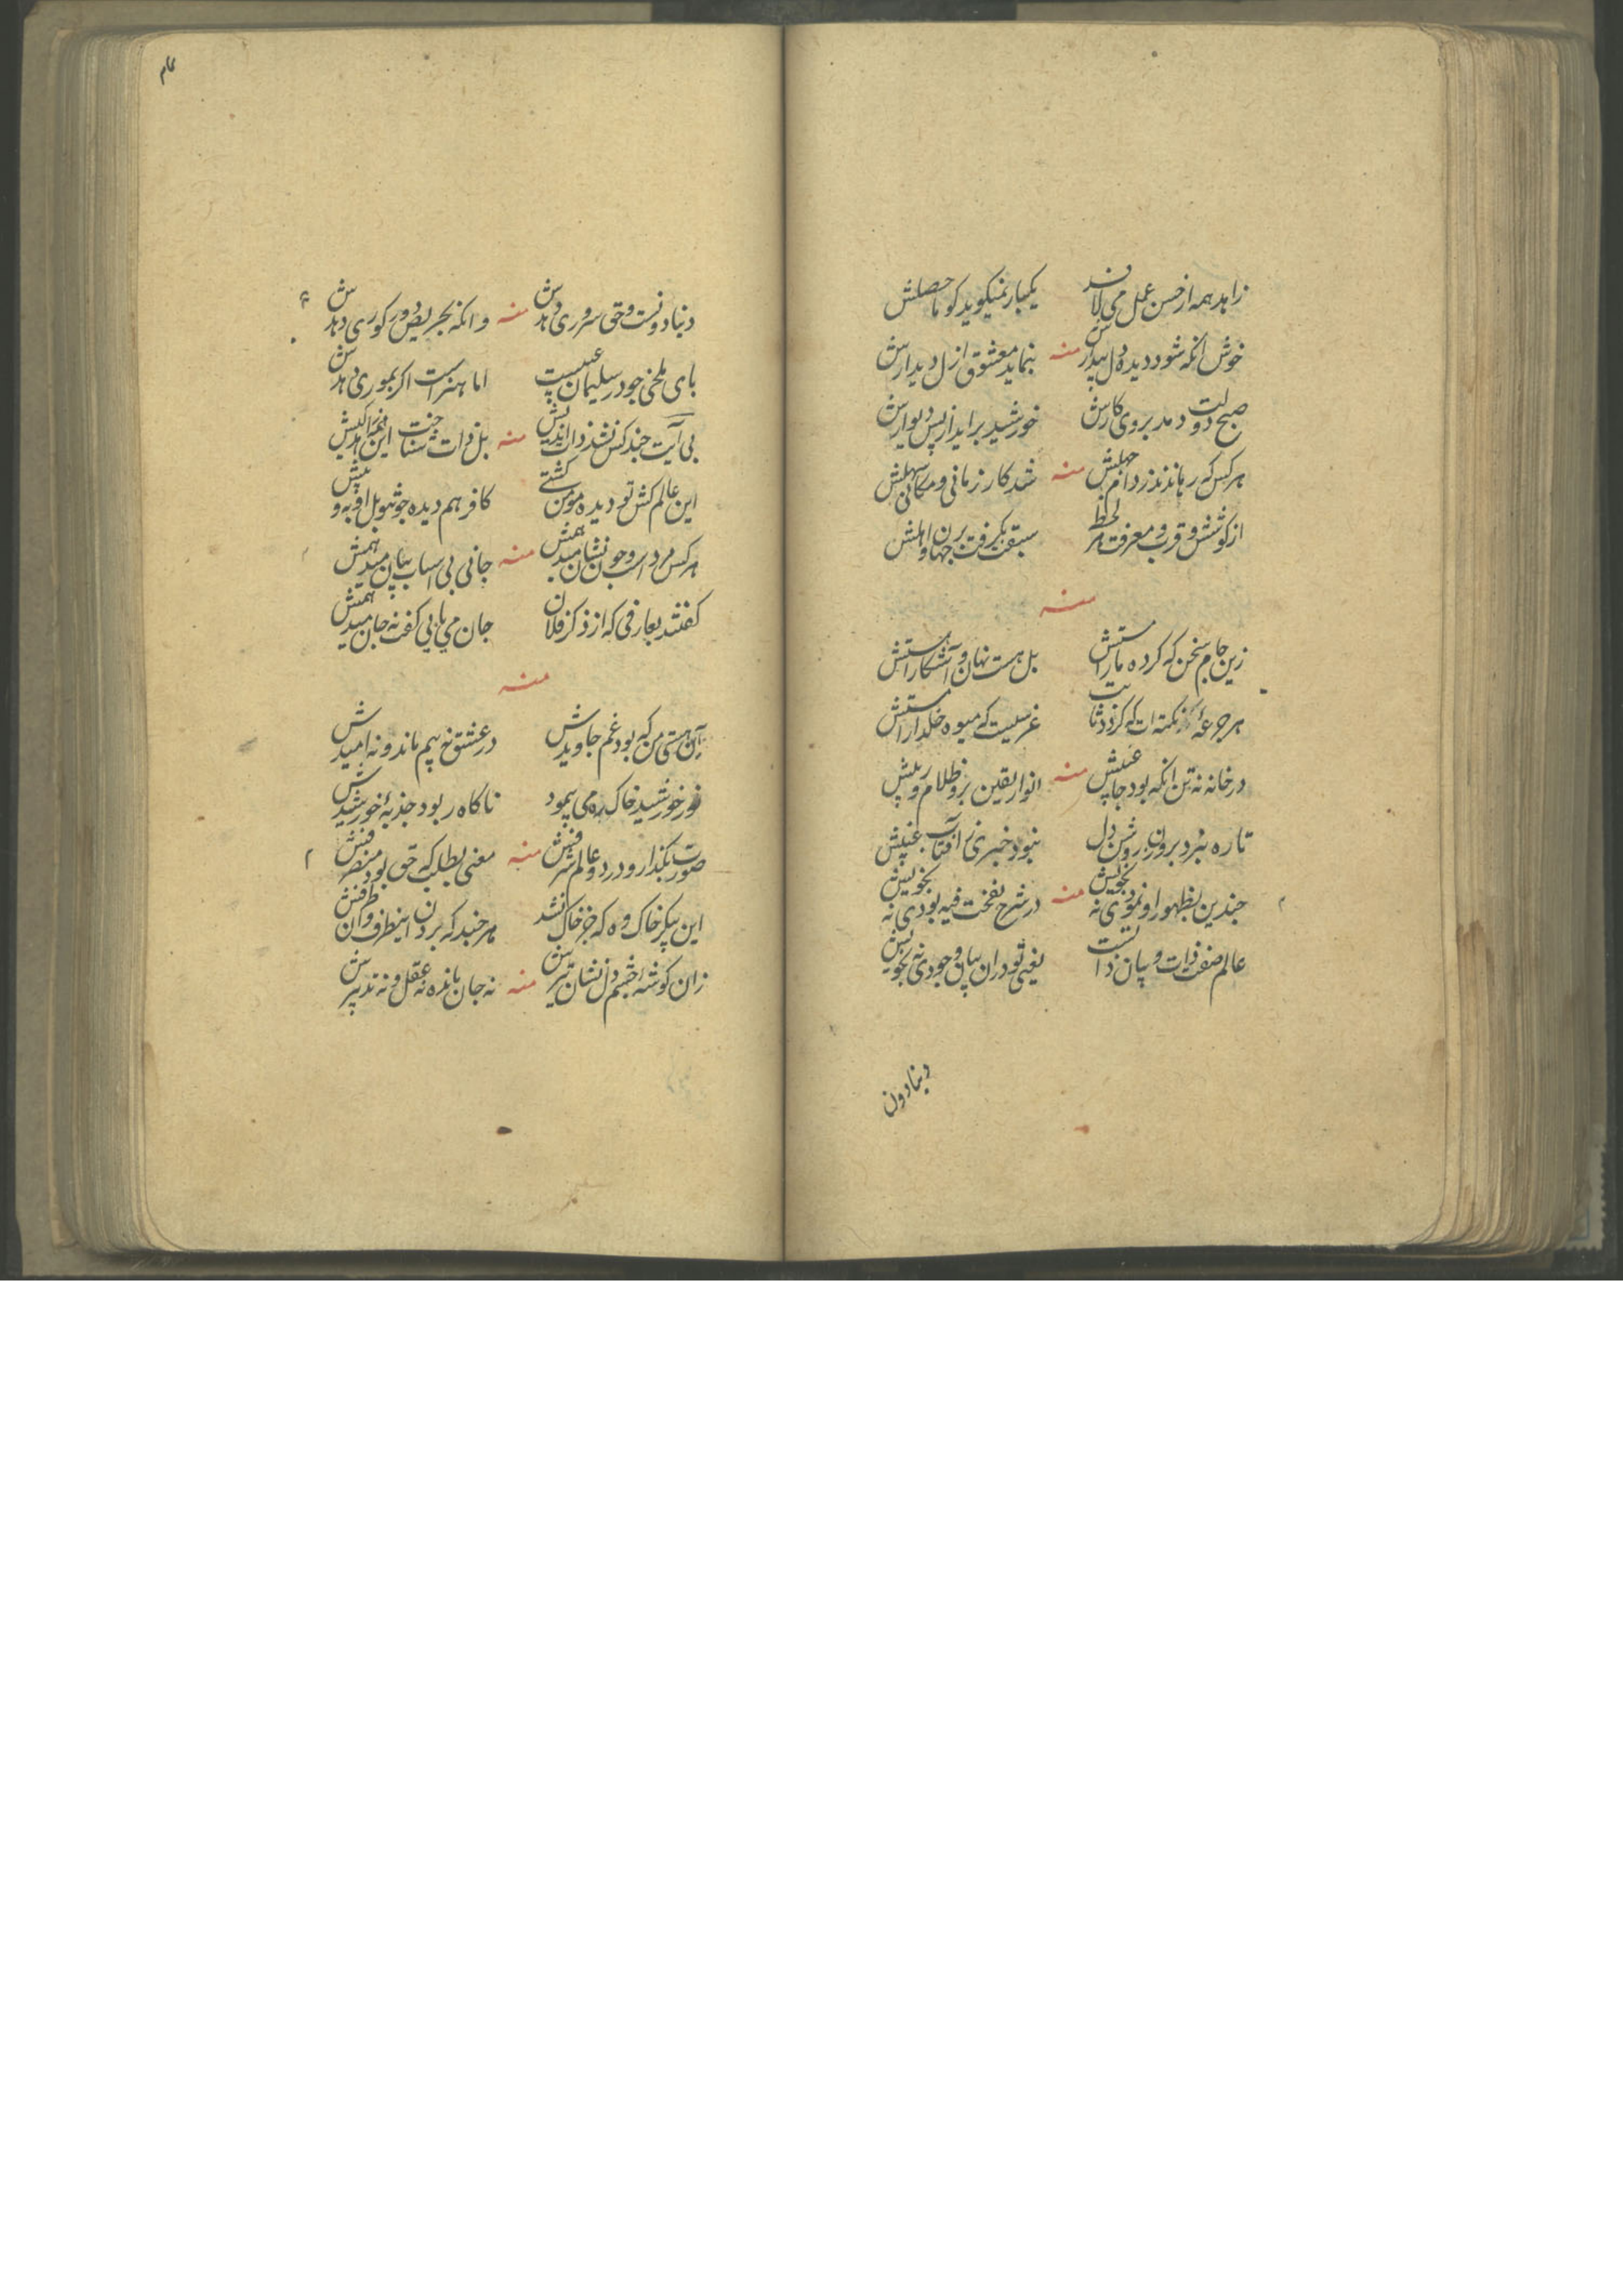 زاهد همه از حسن عمل می لافد یکبار نمیکوید کو ما حصلش
خوش آنکه شود دیده دل بیدارش منه بنماید معشوق ازل دیدارش
صبح دولت دمد بروی کارش خورشید براید از پس دیوارش
هر کس که رهاندند ز دام جهلش منه شد کار زمانی و مکانی سهلش
از کوشش و قرب و معرفت هر لحظه سبقت بگرفت برجهان و اهلش
منه
زین جام سخن که کرده ما را مستش بل هست نهان و آشکارا مستش
هر جرعه از نکته ات که کردد ثابت غرسیت که میوه خلدار استش
در خانه نه تن انکه بود جا پیشش منه انوار یقین برو ظلام ریبش
تا ره نبرد برون ز روشن دل نبود خبری ز آفتاب غیبش
چندین بظهور او نمودی نه بخویش منه در شرح نفخت فیه بودی نه بخویش
عالم صفت ذات و بیان ذاتست یعنی تو در آن بیان وجودی نه بخویش
دنیا دون
دنیا دونست و حق سروری دهدش منه وانکه بحریص دور کوری دهدش
پای ملخی جود سلیمان عیبست اما هنر است اکر بموری دهدش
بی آیت چند کس نشد ذات اندیش منه بل ذات شناخت این
این عالم کش تو دیده مومن کشتی کافر هم دیده چو تو بل او به و بیش
هر کس مرد است و چون نشان میدهمش منه جانی بی اسباب بیان میدهمش
کفتند بعارفی که از ذکر فلان جان می یابی کفت نه جان میدهمش
منه
آن هستی من که بود غم جاویدش در عشق نه بیم ماند و نه امیدش
نور خورشید خاک ره می پیمود ناکاه ربود جذبه خورشیدش
صورت بکذار و در دو عالم شرفش منه معنی بطلب که حق بود منصرفش
این پیکر خاک وه که جز خاک نشد هر چند که بردن اینطرف و آن طرفش
زان کوشه چشم و دل نشان تیرش منه نه جان باندره نه عقل و نه تدبیرش